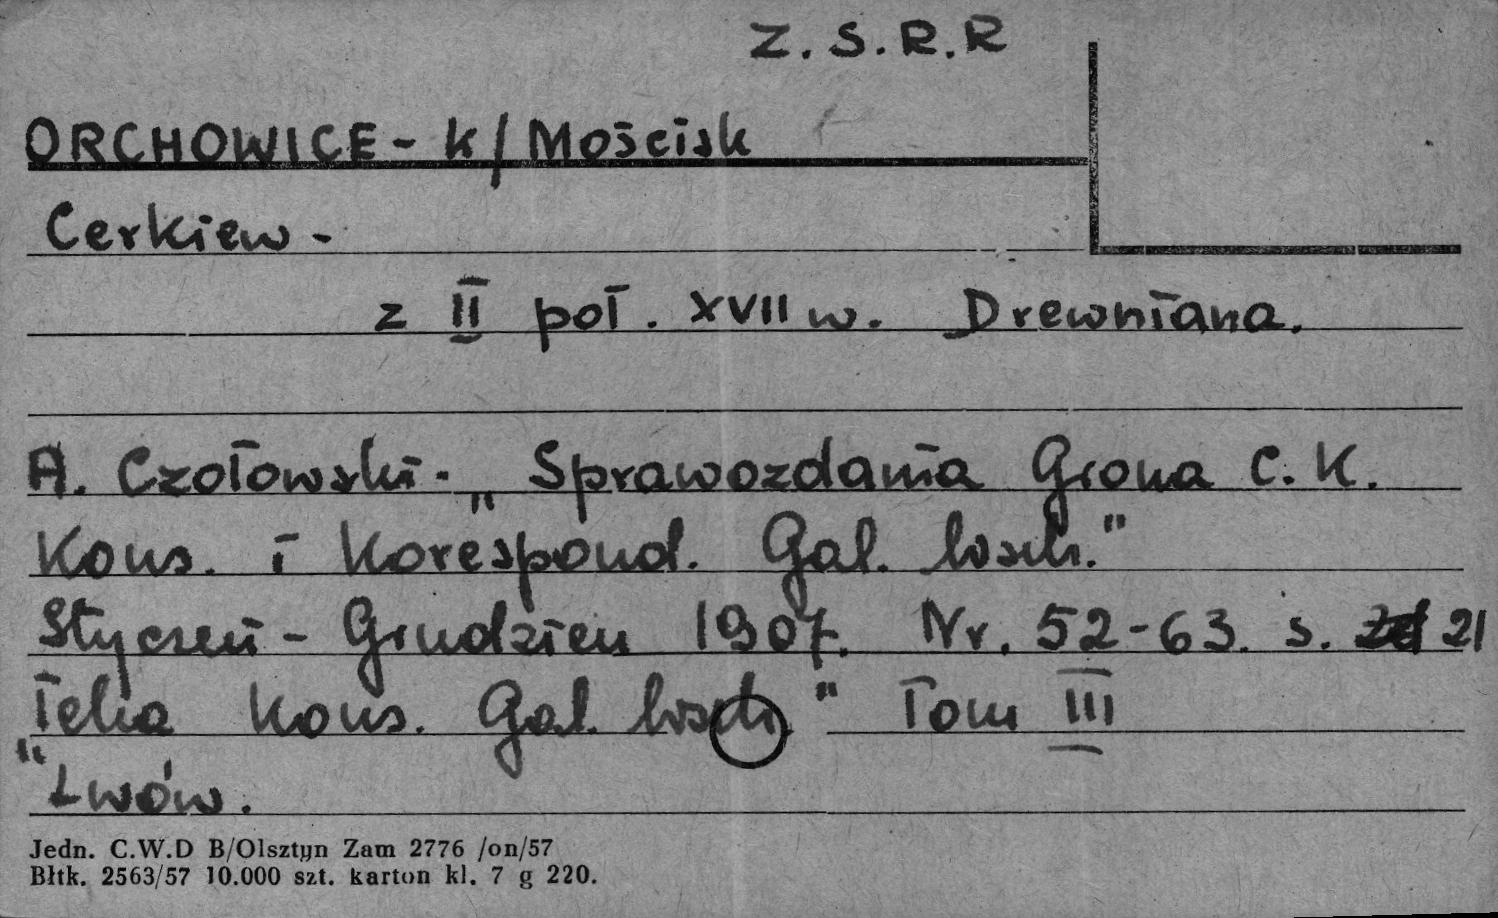 Z.S.R.R
ORCHOWICE - k/Mościsk
Cerkiew -
z II poł. XVII w. Drewniana.
A. Czołowski - „Sprawozdania Grona C.K.
Kons. i Korespond. Gal. Wsch."
Styczeń - Grudzien 1907. Nr. 52-63. s. 21
„Teka Kons. Gal. Wsch." Tom III
Lwów.
Jedn. C.W.D B/Olsztyn Zam 2776 /on/57
Błtk. 2563/57 10.000 szt. karton kl. 7 g 220.